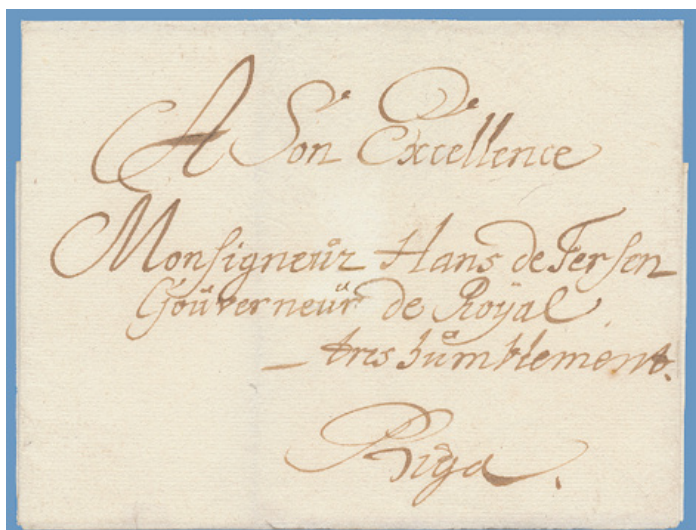 A Son Excellence
Monsigneur Hans de Fersen
Goüverneür de Roÿal
tres hůmblement.
Riga.